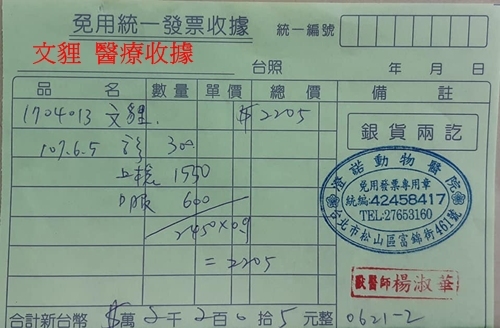 免用統一發票收據
統一編號
文貍 醫療收據
台照 年 月 日
品名 數量 單價 總價 備註
1704013 文貍. $2205
銀貨兩訖
107.6.5 診 300
上檢 1550
口服 600
2450×0.9
=2205
澄諾動物醫院
免用發票專用章
統編:42458417
TEL:27653160
台北市松山區富錦街461號
獸醫師 楊淑華
合計新台幣 $萬2千2百0拾5元整
0621-2